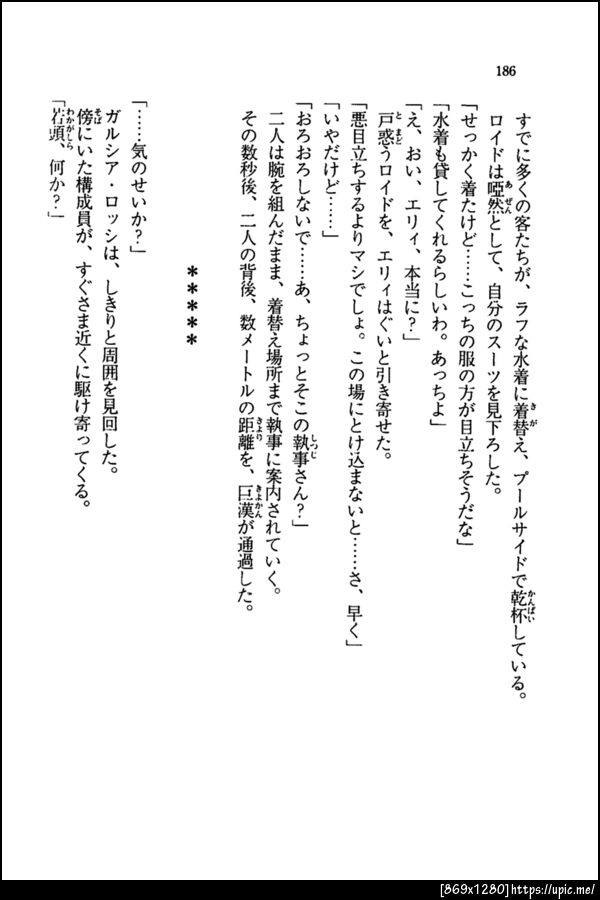 186
すでに多くの客たちが、ラフな水着に着替え、プールサイドで乾杯している。
ロイドは啞然として、自分のスーツを見下ろした。
「せっかく着たけど……こっちの服の方が目立ちそうだな」
「水着も貸してくれるらしいわ。あっちよ」
「え、おい、エリィ、本当に？」
戸惑うロイドを、エリィはぐいと引き寄せた。
「悪目立ちするよりマシでしょ。この場にとけ込まないと……さ、早く」
「いやだけど……」
「おろおろしないで……あ、ちょっとそこの執事さん？」
二人は腕を組んだまま、着替え場所まで執事に案内されていく。
その数秒後、二人の背後、数メートルの距離を、巨漢が通過した。
＊＊＊＊＊
「……気のせいか？」
ガルシア・ロッシは、しきりと周囲を見回した。
傍にいた構成員が、すぐさま近くに駆け寄ってくる。
「若頭、何か？」
[869x1280]https://upic.me/